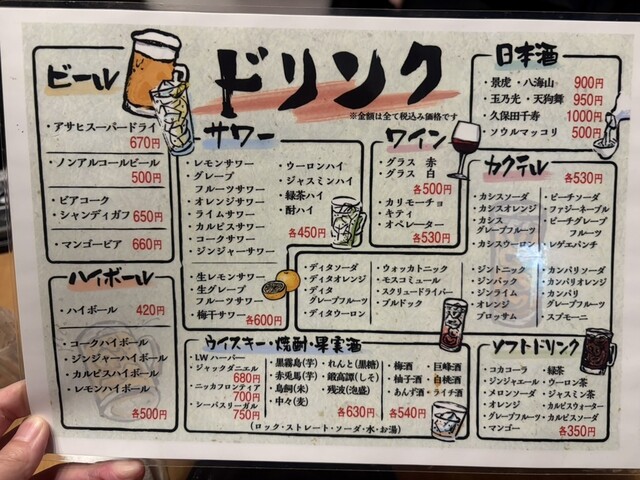 ドリンク
※金額は全て税込み価格です
ビール
・アサヒスーパードライ
670円
・ノンアルコールビール
500円
・ビアコーク
・シャンディガフ 650円
・マンゴービア 660円
ハイボール
・ハイボール 420円
・コークハイボール
・ジンジャーハイボール
・カルピスハイボール
・レモンハイボール
各500円
サワー
・レモンサワー
・グレープ
フルーツサワー
・オレンジサワー
・ライムサワー
・カルピスサワー
・コークサワー
・ジンジャーサワー
・ウーロンハイ
・ジャスミンハイ
・緑茶ハイ
・酎ハイ
各450円
・生レモンサワー
・生グレープ
フルーツサワー
・梅干サワー 各600円
ワイン
・グラス 赤
・グラス 白
各500円
・カリモーチョ
・キティ
・オペレーター
各530円
日本酒
・景虎・八海山 900円
・玉乃光・天狗舞 950円
・久保田千寿 1000円
・ソウルマッコリ 500円
カクテル 各530円
・カシスソーダ
・カシスオレンジ
・カシス
グレープフルーツ
・カシスウーロン
・ピーチソーダ
・ファジーネーブル
・ピーチグレープ
フルーツ
・レゲエパンチ
・ディタソーダ
・ディタオレンジ
・ディタ
グレープフルーツ
・ディタウーロン
・ウォッカトニック
・モスコミュール
・スクリュードライバー
・ブルドック
・ジントニック
・ジンバック
・ジンライム
・オレンジ
ブロッサム
・カンパリソーダ
・カンパリオレンジ
・カンパリ
グレープフルーツ
・スプモーニ
ウイスキー・焼酎・果実酒
・LWハーパー
・ジャックダニエル
680円
・ニッカフロンティア
700円
・シーバスリーガル
750円
・黒霧島(芋)
・赤兎馬(芋)
・鳥飼(米)
・中々(麦)
・れんと(黒糖)
・鍛高譚(しそ)
・残波(泡盛)
各630円
・梅酒
・柚子酒
・あんず酒
・巨峰酒
・白桃酒
・ライチ酒
各540円
(ロック・ストレート・ソーダ・水・お湯)
ソフトドリンク
・コカコーラ
・ジンジャエール
・メロンソーダ
・オレンジ
・グレープフルーツ
・マンゴー
・緑茶
・ウーロン茶
・ジャスミン茶
・カルピスウォーター
・カルピスソーダ
各350円